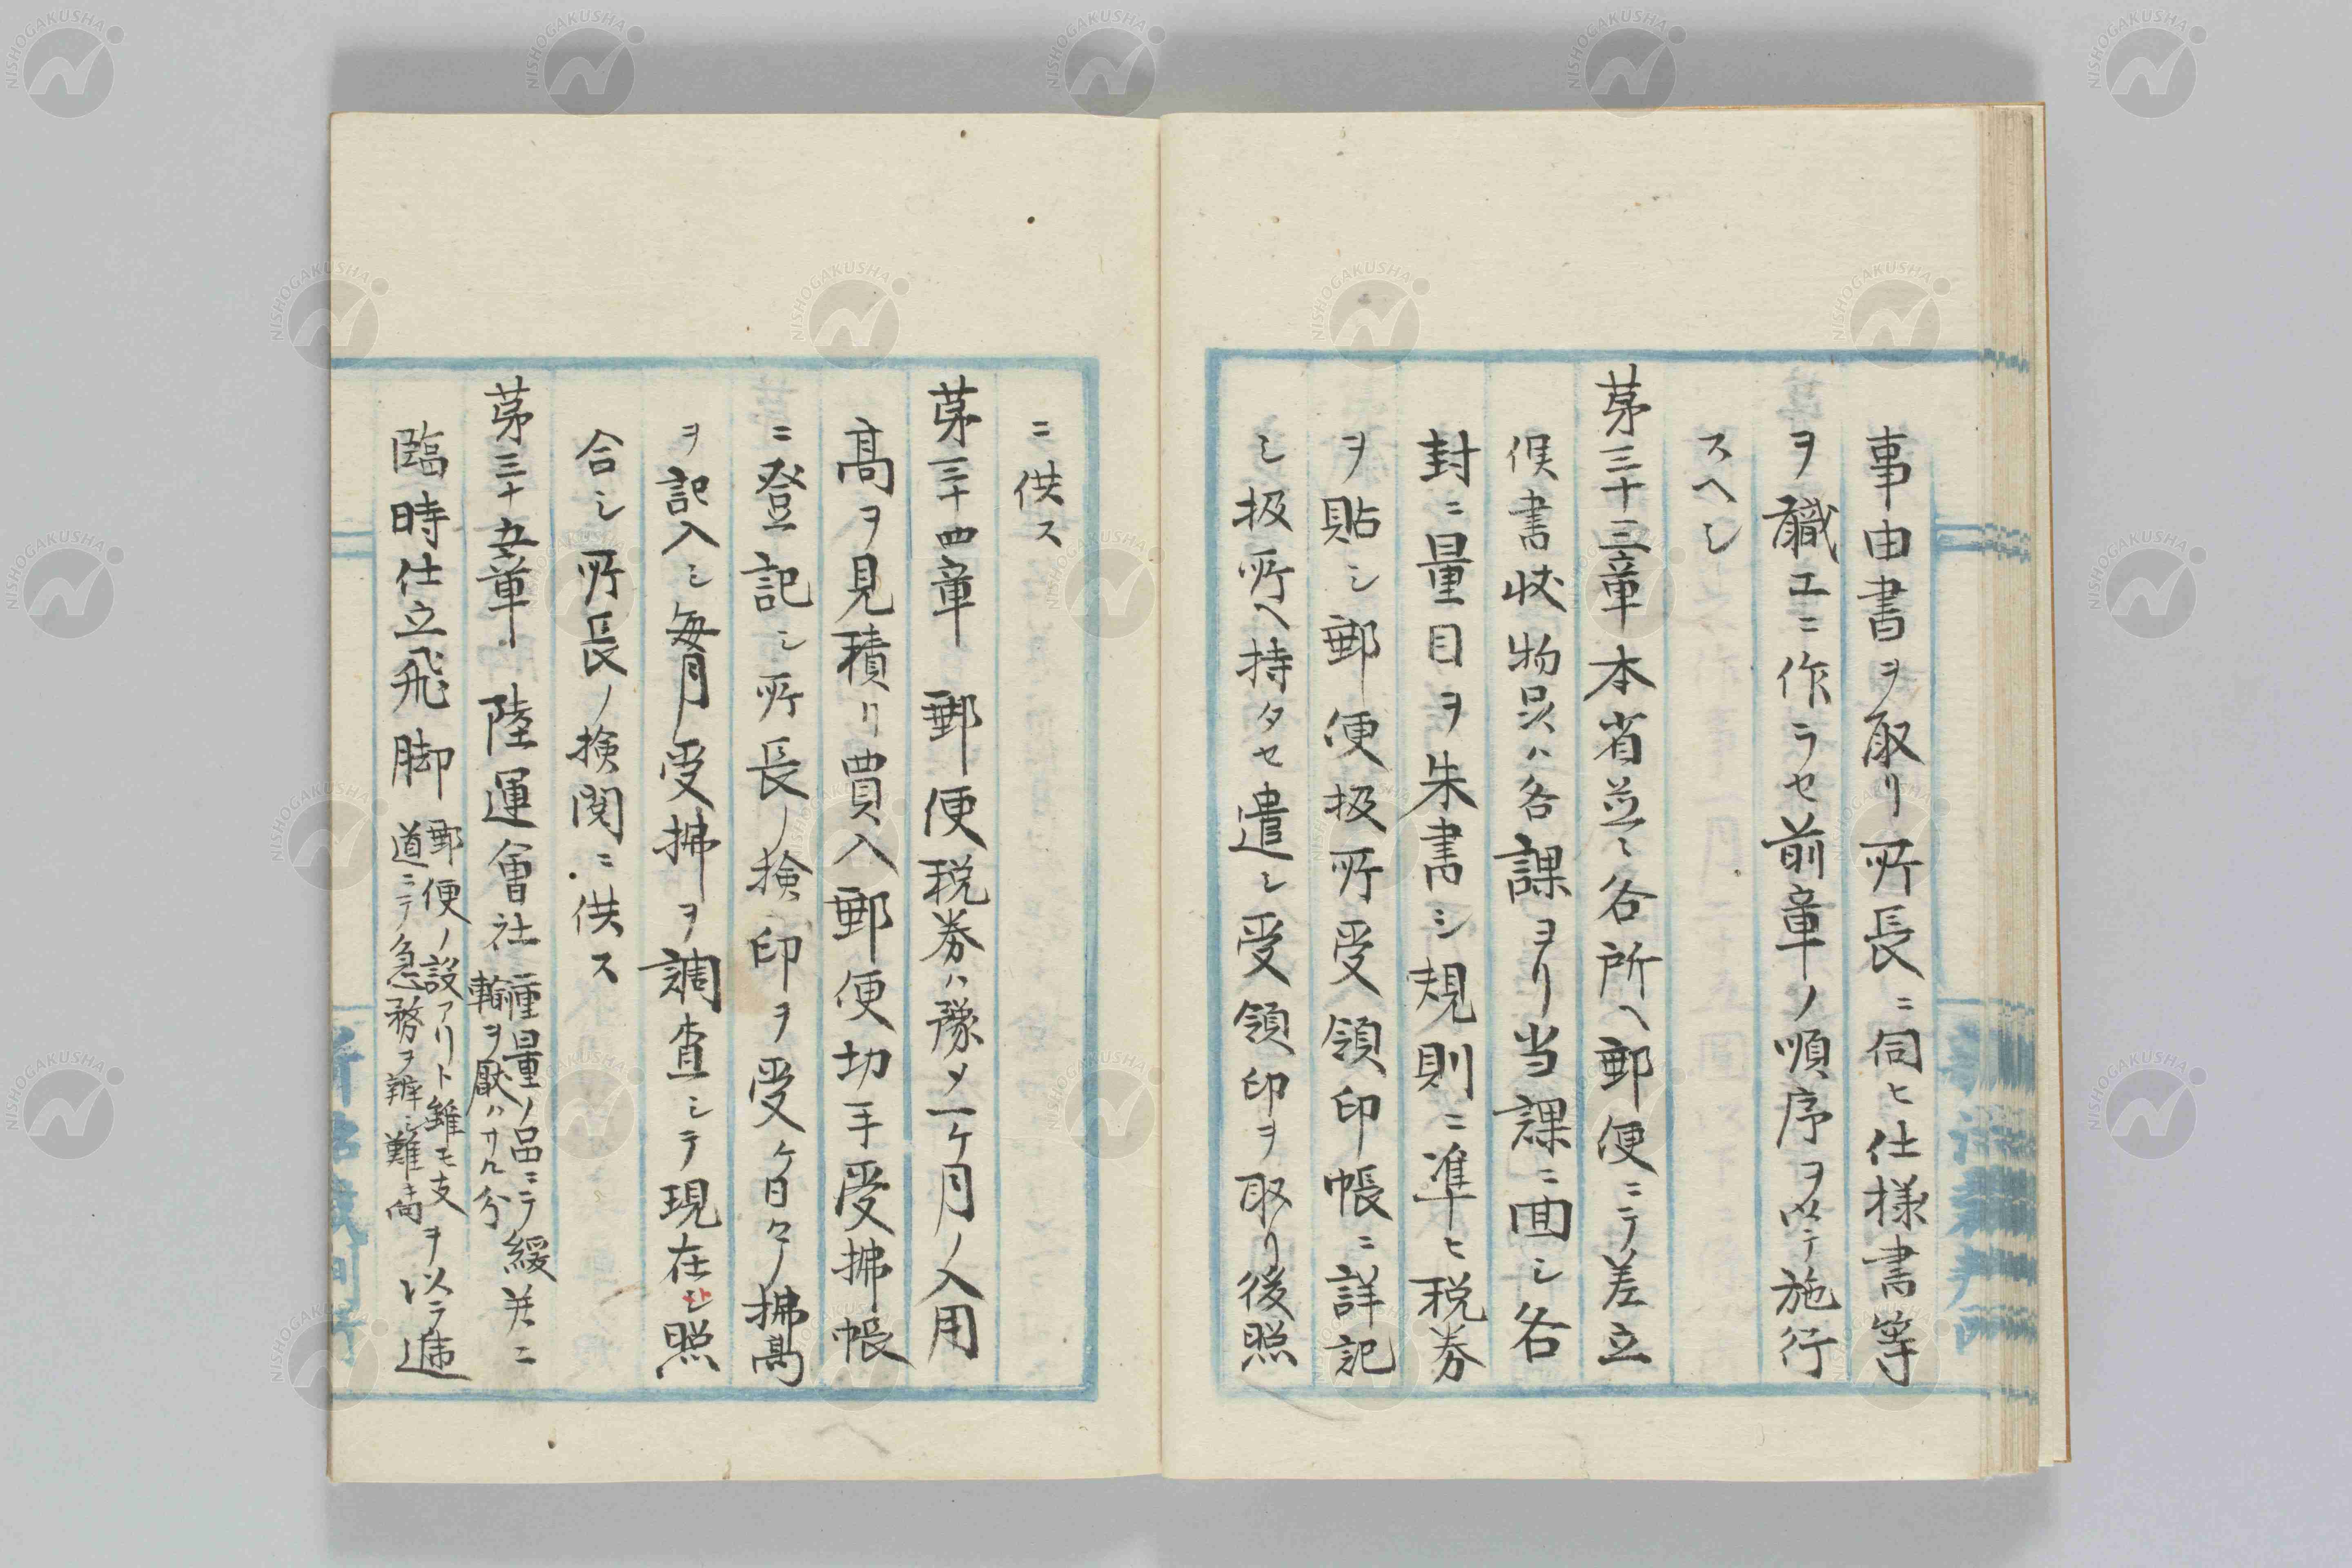 事由書ヲ取リ所長ニ伺ヒ仕様書等
ヲ職工ニ作ラセ前章ノ順序ヲ以テ施行
スヘシ
第三十三章本省並ニ各所ヘ郵便ニテ差立
候書状物品ハ各課ヨリ当課ニ回シ各
封ニ量目ヲ朱書シ規則ニ準ヒ税券
ヲ貼シ郵便扱所受領印帳ニ詳記
シ扱所ヘ持タセ遣シ受領印ヲ取リ後照
ニ供ス
第三十四章 郵便税券ハ豫メ一ケ月ノ入用
高ヲ見積リ買入郵便切手受拂帳
ニ登記シ所長ノ検印ヲ受ケ日々ノ拂高
ヲ記入シ毎月受拂ヲ調査シテ現在ト照
合シ所長ノ検閲ニ供ス
第三十五章 陸運會社 重量ノ品ニテ緩
輸ヲ厭ハサル分 并ニ
臨時仕立飛脚 郵便ノ設アリト雖モ支
道ニテ急務ヲ辨シ難キ ヲ以テ逓
NISHOGAKUSHA